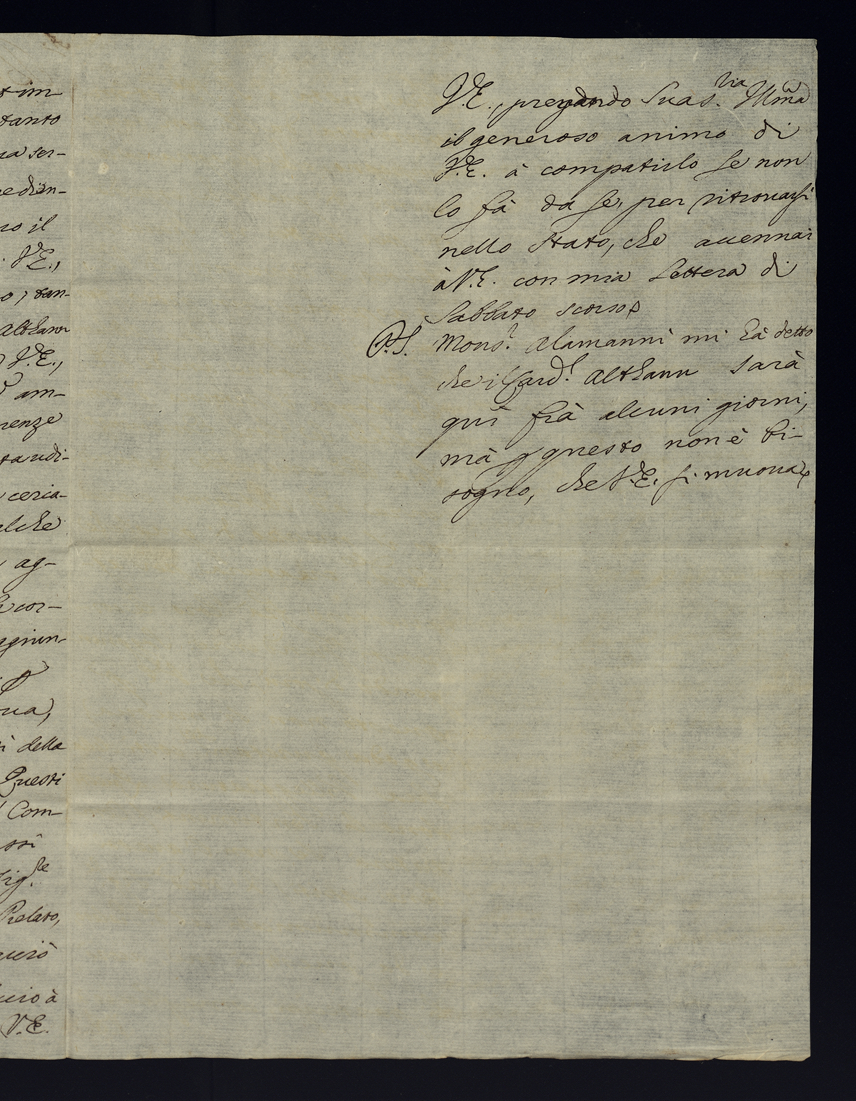 et im-
tanto
ua ser-
median-
no il
V.E.,
o, tan-
Althann
V.E.,
am-
renze
ta udi-
cerca-
alche
ag-
cor-
aggiun-
ua,
i della
Questi
Com-
ssi
Sig.re
Prelato,
V.E.
V.E., pregando Sua S.ria Ill.ma
il generoso animo di
V.E. à compatirlo se non
lo fà da se per ritrovarsi
nello stato, che avennai
à V.E. con mia lettera di
Sabbato scorso
P.S. Mons.r Alamanni mi hà detto
che il Card.l Althann sarà
quì frà alcuni giorni,
mà p questo non è bi-
sogno, che V.E. si muova